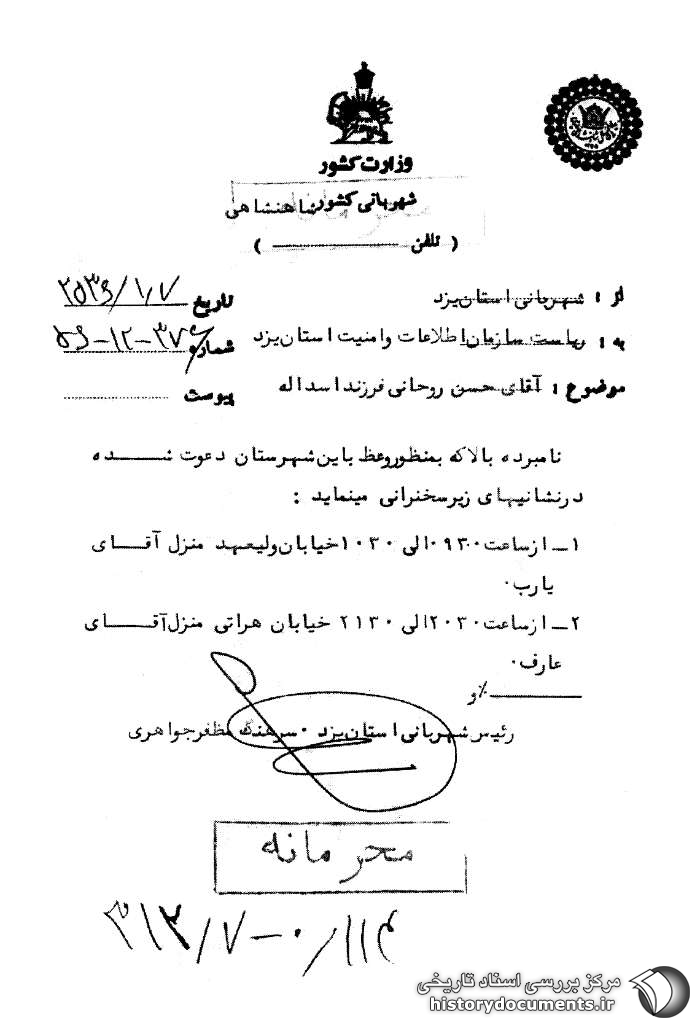 وزارت کشور
شهربانی کشور شاهنشاهی
( تلفن )
از : شهربانی استان یزد
تاریخ ۲۵۳۶/۱/۷
به : ریاست سازمان اطلاعات و امنیت استان یزد
شماره ۵۶-۱۲-۳۷
موضوع : آقای حسن روحانی فرزند اسداله
پیوست
نامبرده بالا که بمنظور وعظ باین شهرستان دعوت شده
در نشانیهای زیر سخنرانی مینماید :
۱ـ از ساعت ۰۹۳۰ الی ۱۰۳۰ خیابان ولیعهد منزل آقای
یارب.
۲ـ از ساعت ۲۰۳۰ الی ۲۱۳۰ خیابان هراتی منزل آقای
عارف.
/.و
رئیس شهربانی استان یزد . سرهنگ مظفر جواهری
محرمانه
مرکز بررسی اسناد تاریخی
historydocuments.ir